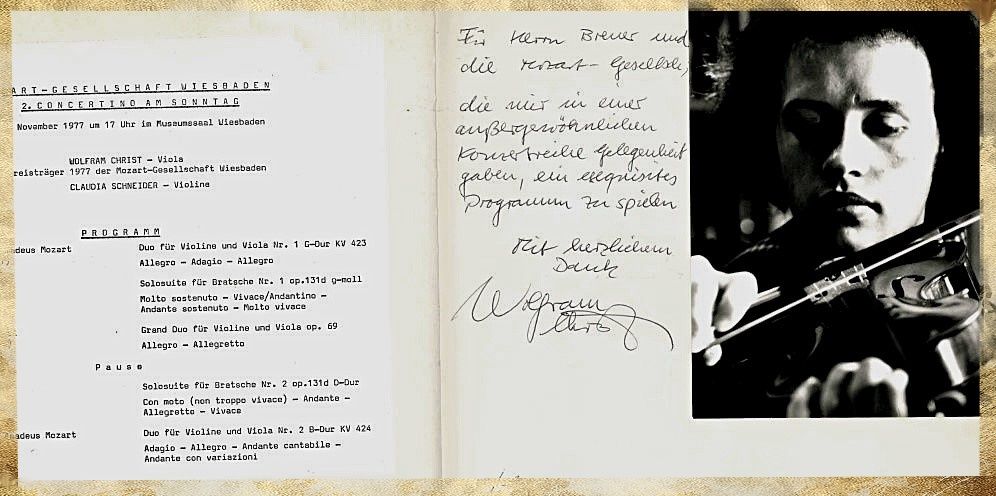 ART-GESELLSCHAFT WIESBADEN
2. CONCERTINO AM SONNTAG
November 1977 um 17 Uhr im Museumssaal Wiesbaden
WOLFRAM CHRIST - Viola
reisträger 1977 der Mozart-Gesellschaft Wiesbaden
CLAUDIA SCHNEIDER - Violine
PROGRAMM
adeus Mozart
Duo für Violine und Viola Nr. 1 G-Dur KV 423
Allegro - Adagio - Allegro
Solosuite für Bratsche Nr. 1 op.131d g-moll
Molto sostenuto - Vivace/Andantino -
Andante sostenuto - Molto vivace
Grand Duo für Violine und Viola op. 69
Allegro - Allegretto
Pause
Solosuite für Bratsche Nr. 2 op.131d D-Dur
Con moto (non troppo vivace) - Andante -
Allegretto - Vivace
adeus Mozart
Duo für Violine und Viola Nr. 2 B-Dur KV 424
Adagio - Allegro - Andante cantabile -
Andante con variazioni
Für Herrn Breuer und
die Mozart-Gesellsch,
die mir in einer
außergewöhnlichen
Konzertreihe Gelegenheit
gaben, ein exquisites
Programm zu spielen
Mit herzlichem
Dank
Wolfram
Christ